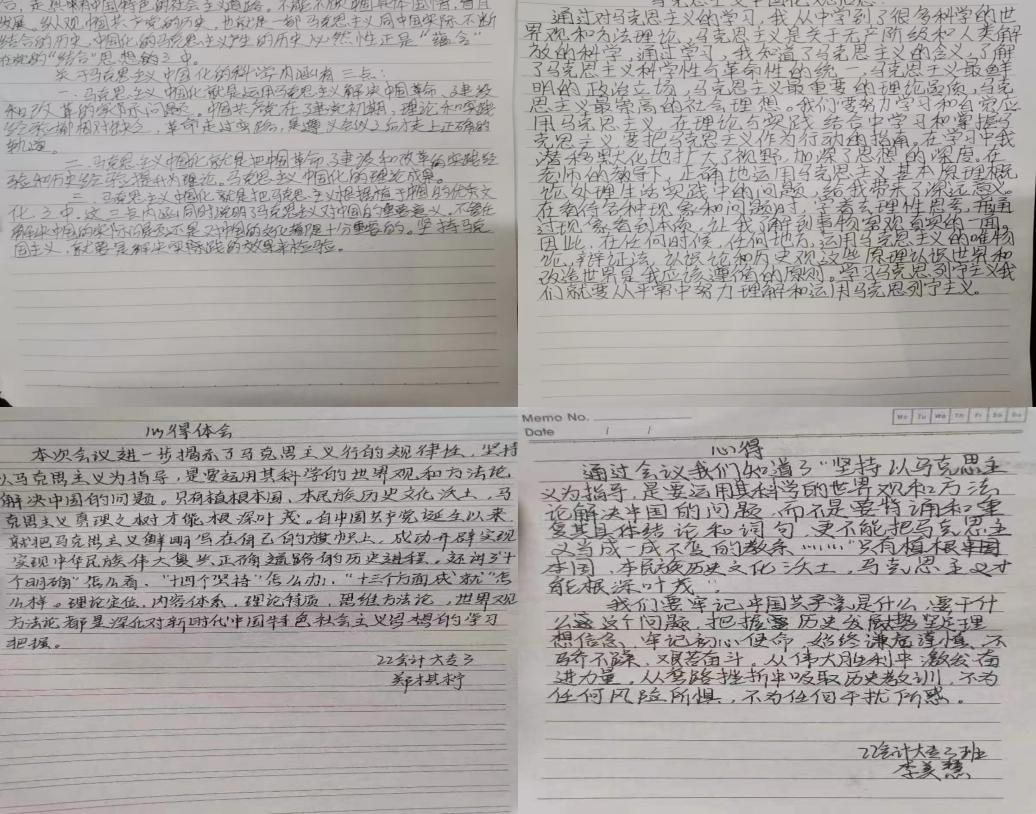 发展。纵观中国共产党的历史，也就是一部马克思主义同中国实际不断
结合的历史，中国化的马克思主义产生的历史必然性正是“蕴含”
关于马克思主义中国化的科学内涵有三点：
一、马克思主义中国化就是运用马克思主义解决中国革命、建设
和改革的实际问题。中国共产党在建党初期，理论和实践
经验都相对缺乏，革命走过弯路，是遵义会议之后才走上正确的
轨道。
二、马克思主义中国化就是把中国革命、建设和改革的实践经
验和历史经验提升为理论。马克思主义中国化的理论成果。
三、马克思主义中国化就是把马克思主义根植于中国的优秀文
化之中。这三点内涵同时说明马克思主义对中国的重要意义，不管在
国主义，就要是解决实践的效果来检验。
通过对马克思主义的学习，我从中学到了很多科学的世
界观和方法理论，马克思主义是关于无产阶级和人类解
放的科学，通过学习，我知道了马克思主义的含义，了解
了马克思主义科学性与革命性的统一，马克思主义最鲜
明的政治立场，马克思主义最重要的理论品质，马克
思主义最崇高的社会理想。我们要努力学习和自觉应
用马克思主义，在理论与实践结合中学习和掌握马
克思主义要把马克思主义作为行动的指南。在学习中我
潜移默化地扩大了视野，加深了思想的深度。在
老师的教导下，正确地运用马克思主义基本原理概
论处理生活实践中的问题，给我带来了深远意义。
在看待各种现象和问题时，学着去理性思索，并通
过现象看到本质，让我了解到事物客观真实的一面。
因此，在任何时候，任何地方，运用马克思主义的唯物
论，辩证法，认识论和历史观这些原理认识世界和
改造世界是我应该遵循的原则。学习马克思列宁主义我
们就要从平常中努力理解和运用马克思列宁主义。
心得体会
本次会议进一步揭示了马克思主义行的规律性，坚持
以马克思主义为指导，是要运用其科学的世界观和方法论
解决中国的问题。只有植根本国、本民族历史文化沃土，马
克思主义真理之树才能根深叶茂。自中国共产党诞生以来，
就把马克思主义鲜明写在自己的旗帜上，成功开辟实现
实现中华民族伟大复兴正确道路的历史进程。
个明确”怎么看，“十四个坚持”怎么办，“十三个方面成就”怎
么样。理论定位，内容体系，理论特质，思维方法论，世界观
方法论都是深化对新时代中国特色社会主义思想的学习
把握。
22会计大专3
郑棋柠
Memo No.
Date / /
Mo Tu We Th Fr Sa Su
心得
通过会议我们知道了“坚持以马克思主
义为指导，是要运用其科学的世界观和方法
论解决中国的问题，而不是要背诵和重
复其具体结论和词句，更不能把马克思主
义当成一成不变的教条……”“只有植根
本国、本民族历史文化沃土，马克思主义才
能根深叶茂”。
我们要牢记中国共产党是什么，要干什
么这个问题，把握历史发展趋势坚定理
想信念，牢记初心使命，始终谦虚谨慎、不
骄不躁、艰苦奋斗。从伟大胜利中激发奋
进力量，从弯路挫折中吸取历史教训，不为
任何风险所惧，不为任何干扰所惑。
22会计大专3班
李美慧